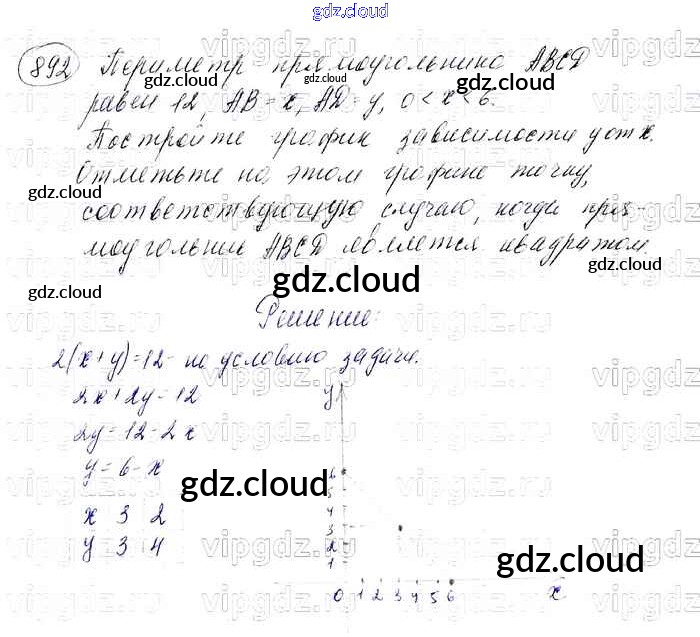 gdz.cloud
892 Периметр прямоугольника ABCD
равен 12, AB = x, AD = y, 0 < x < 6.
Постройте график зависимости y от x.
Отметьте на этом графике точку,
соответствующую случаю, когда пря-
моугольник ABCD является квадратом.
Решение:
2(x+y)=12 - по условию задачи.
2x+2y=12
2y=12-2x
y=6-x
x 3 2
y 3 4
y
6
5
4
3
2
1
0 1 2 3 4 5 6 x
gdz.cloud
gdz.cloud
gdz.cloud
gdz.cloud
gdz.cloud
gdz.cloud
gdz.cloud
gdz.cloud
gdz.cloud
vipgdz.ru